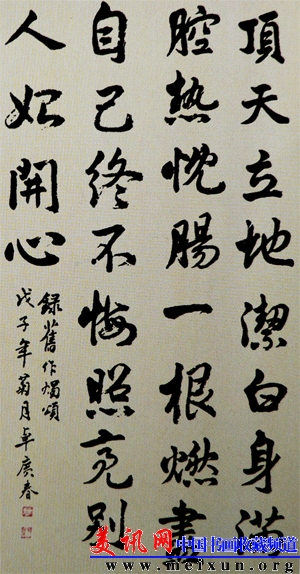 頂天立地潔白身滿
腔熱忱腸一根燃盡
自己終不悔照亮别
人始開心
錄舊作燭頌
戊子年菊月卓春
美讯网 中国书画收藏频道
www.meixun.org